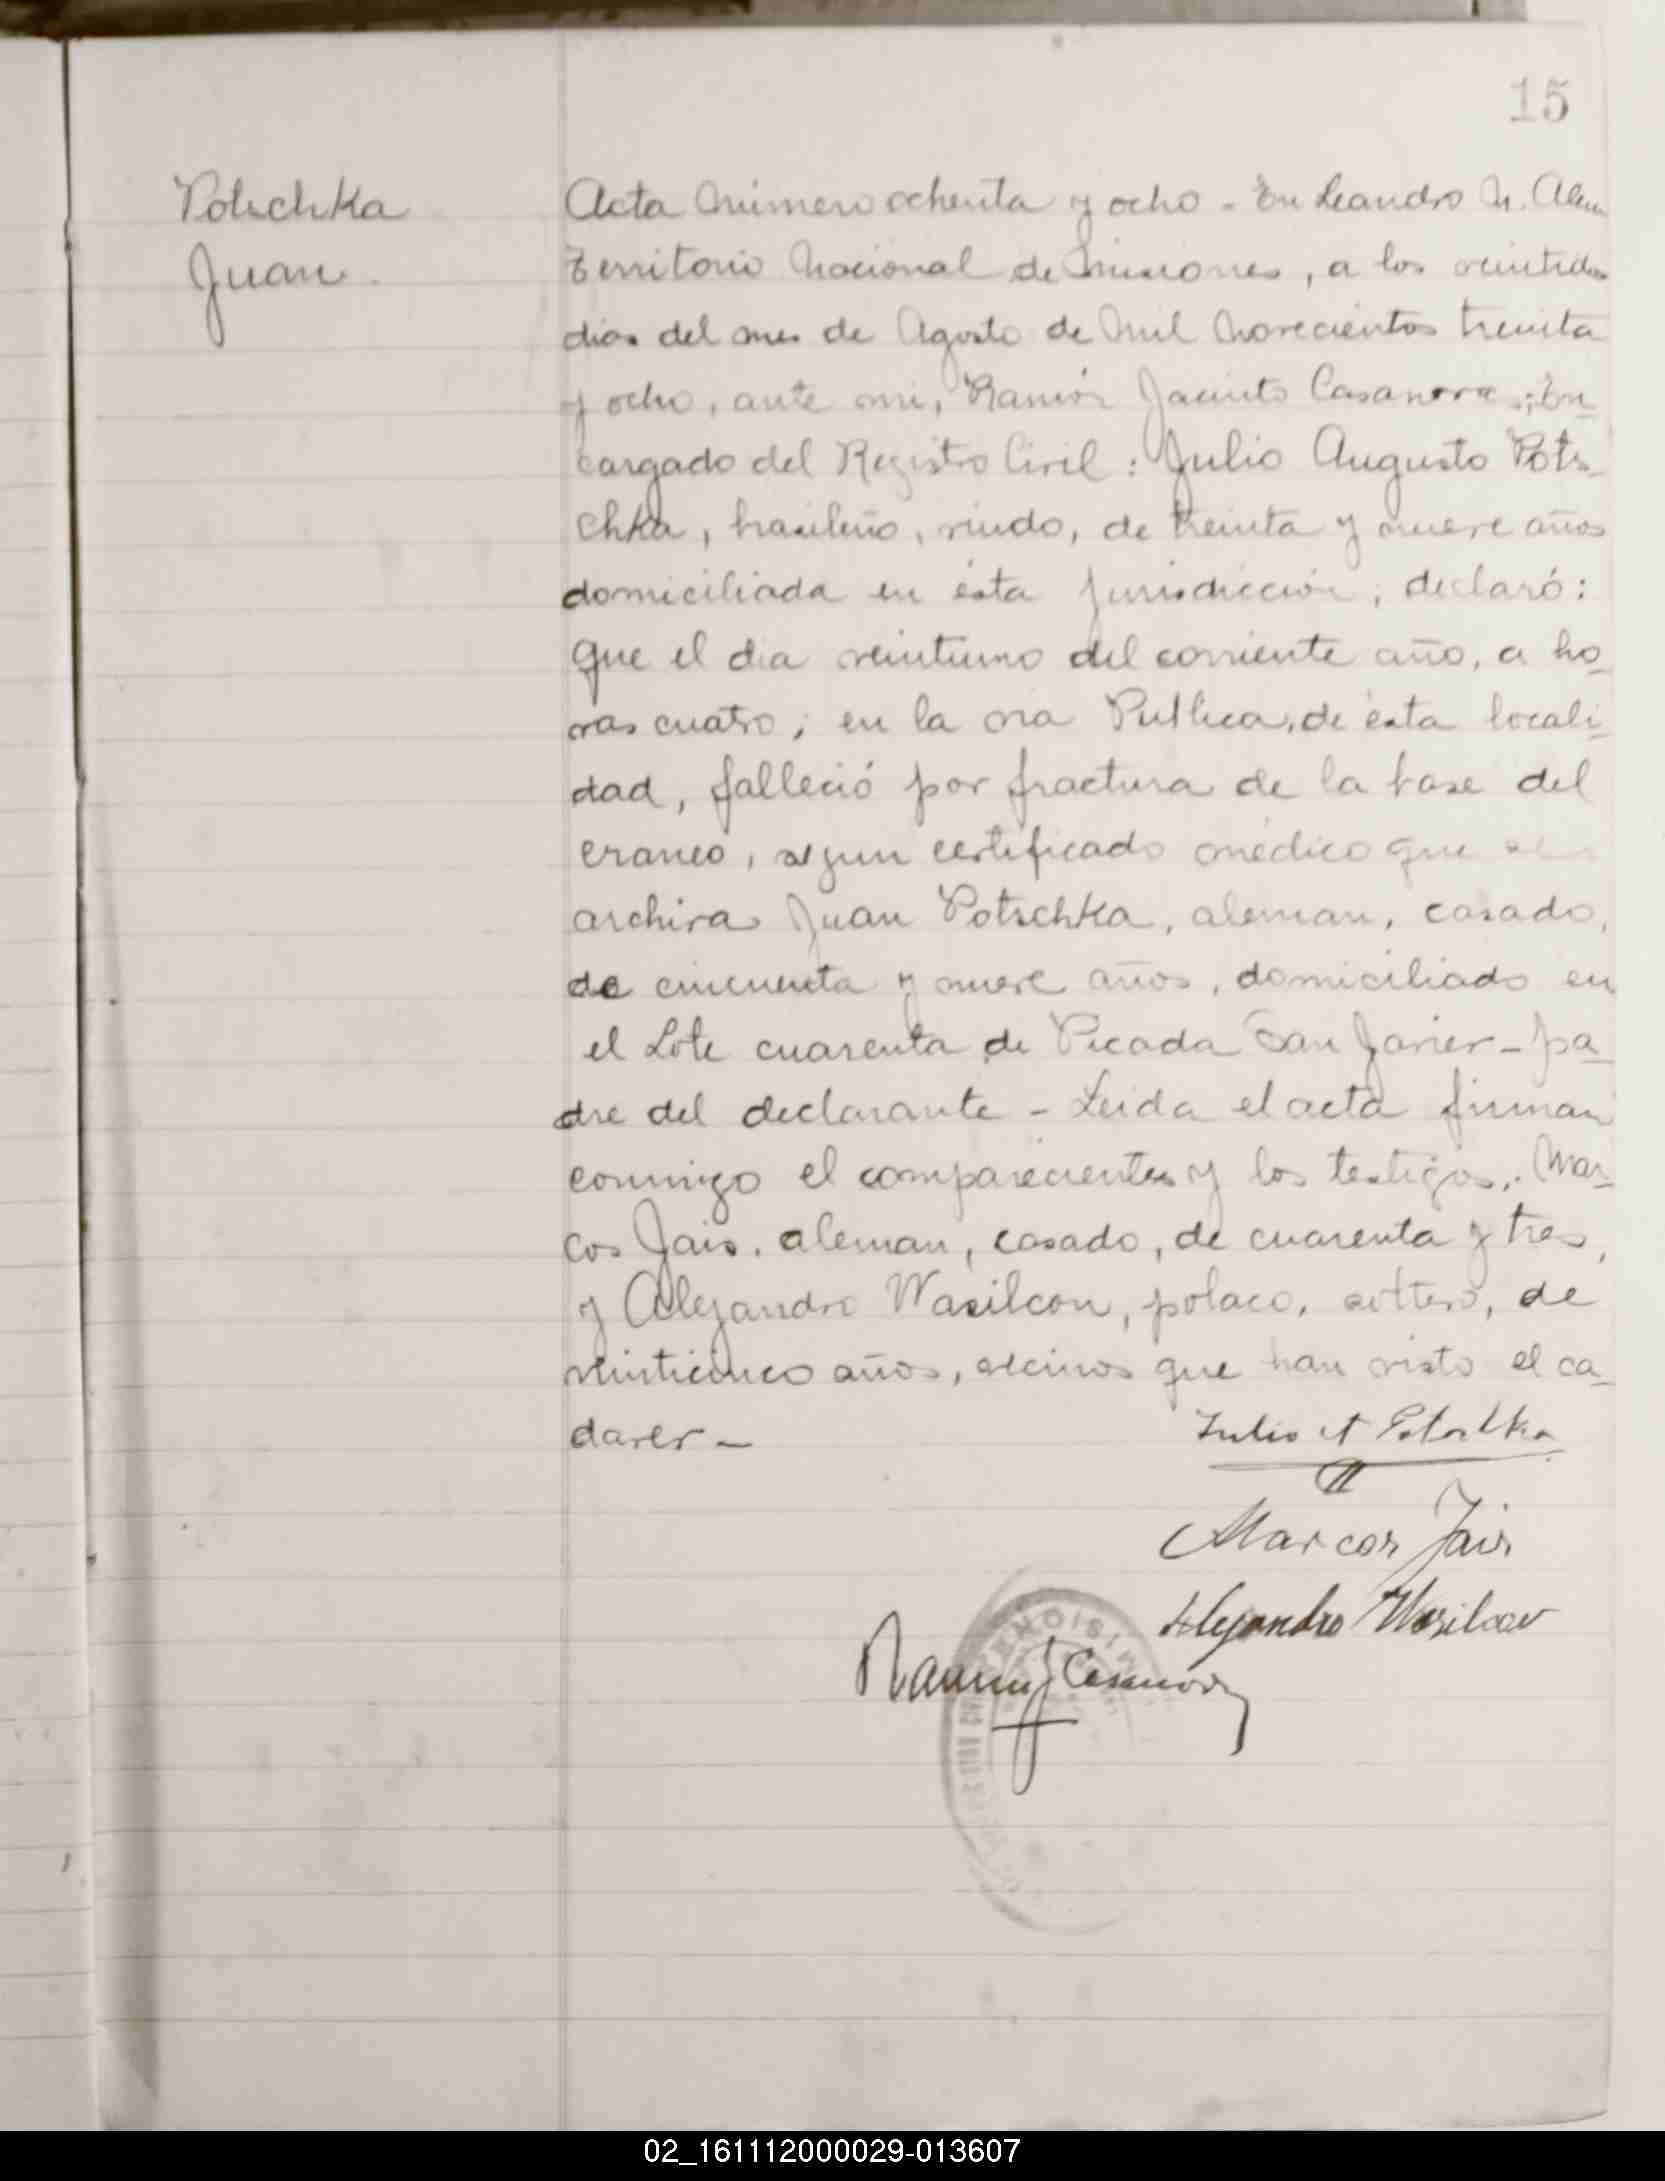 15
Potschka
Juan.
Acta Número ochenta y ocho - En Leandro N. Alem
Territorio Nacional de Misiones, a los veintidos
días del mes de Agosto de Mil Novecientos treinta
y ocho, ante mi, Ramón Jacinto Casanova, En
cargado del Registro Civil: Julio Augusto Pots-
chka, brasileño, viudo, de treinta y nueve años
domiciliada en ésta jurisdicción, declaró:
que el dia veintiuno del corriente año, a ho-
ras cuatro, en la via Publica, de ésta locali-
dad, falleció por fractura de la base del
craneo, segun certificado médico que se
archiva Juan Potschka, aleman, casado,
de cincuenta y nueve años, domiciliado en
el Lote cuarenta de Picada San Javier - pa-
dre del declarante - Leida el acta firman
conmigo el compareciente y los testigos, Mar-
cos Jais, aleman, casado, de cuarenta y tres,
y Alejandro Wasilcon, polaco, soltero, de
veinticinco años, vecinos que han visto el ca-
daver -
Julio A Potschka
Marcos Jais
Alejandro Wasilcow
Ramón J Casanova
MISIONES
02_161112000029-013607